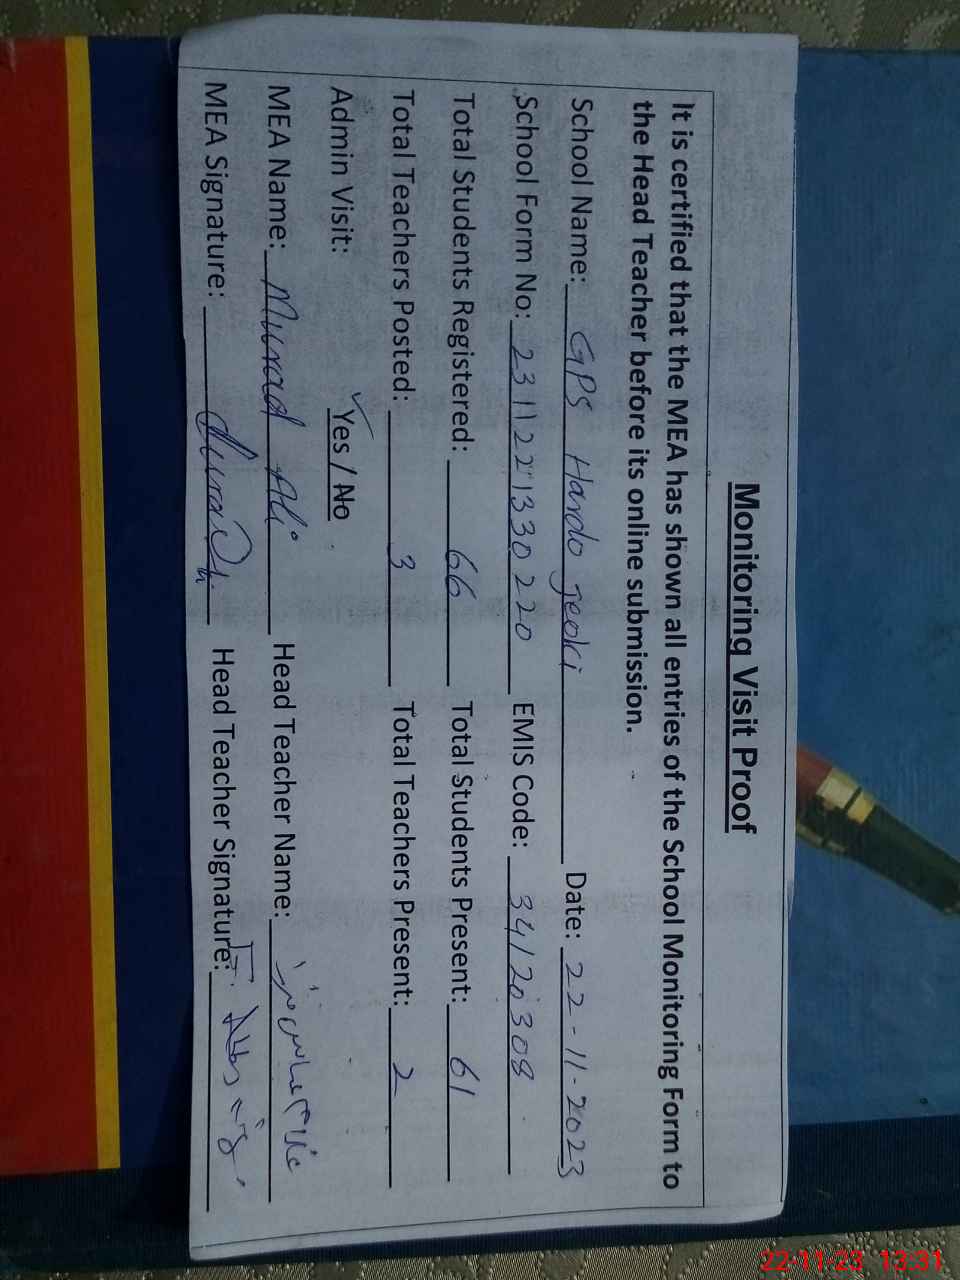 Monitoring Visit Proof
It is certified that the MEA has shown all entries of the School Monitoring Form to
the Head Teacher before its online submission.
School Name: GPS Hando Jeoki Date: 22-11-2023
School Form No: 2311221330220 EMIS Code: 34120308
Total Students Registered: 66 Total Students Present: 61
Total Teachers Posted: 3 Total Teachers Present: 2
Admin Visit: Yes / No
MEA Name: Murad Ali Head Teacher Name:
MEA Signature: Head Teacher Signature:
22-11-23 13:31